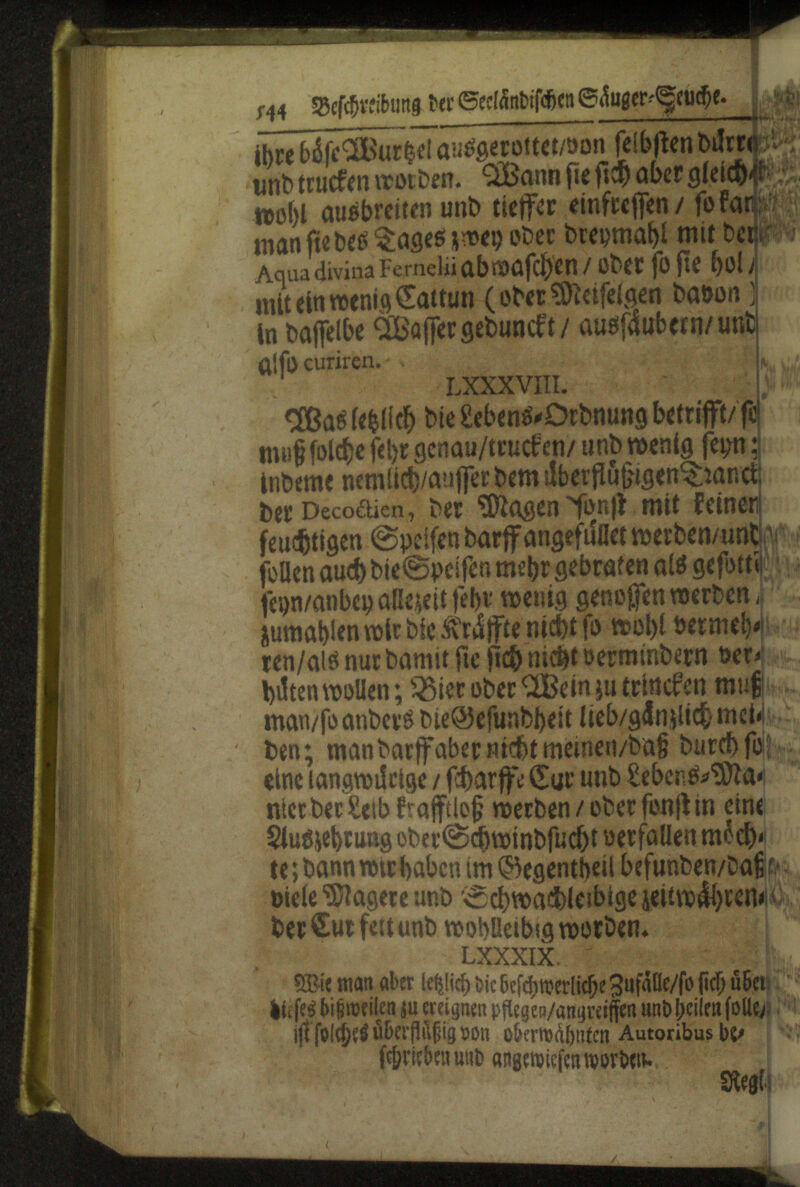 144 Beschreibung der Seeländischen Säuger-Seuche.
ihre böse Wurtzel ausgerottet/von selbsten dürre
und trucken worden. Wann sie sich aber gleich
wohl ausbreiten und tieffer einfressen / so kan
man sie des Tages zwey oder dreymahl mit der
Aqua divina Fernelii abwaschen / oder so sie hol /
mit ein wenig Cattun (oder Meiselgen davon)
in dasselbe Wasser gedunckt / aussäubern/ und
also curiren.
LXXXVIII.
Was letzlich die Lebens-Ordnung betrifft/ so
muß solche sehr genau/trucken/ und wenig seyn;
indeme nemlich/ausser dem überflüßigen Tranck
der Decoctien, der Magen sonst mit keiner
feuchtigen Speisen darff angefüllet werden/und
sollen auch die Speisen mehr gebraten als gesotte
seyn/anbey allezeit sehr wenig genossen werden,
zumahlen wir die Kräffte nicht so wohl vermeh-
ren/als nur damit sie sich nicht vermindern ver-
hüten wollen; Bier oder Wein zu trincken muß
man/so anders die Gesundheit lieb/gänzlich mei-
den; man darff aber nicht meinen/daß durch so
eine langwürige / scharffe Cur und Lebens-Ma-
nier der Leib krafftloß werden / oder sonst in eine
Auszehrung oder Schwindsucht verfallen möch-
te; dann wir haben im Gegentheil befunden/daß
viele Magere und Schwachleibige zeitwähren-
der Cur fett und wohlleibig worden.
LXXXIX.
Wie man aber letzlich die beschwerliche Zufälle/so sich über
dieses bißweilen zu ereignen pflegen/angreiffen und heilen solle/
ist solches überflüßig von oberwähnten Autoribus be-
schrieben und angewiesen worden.
Regl